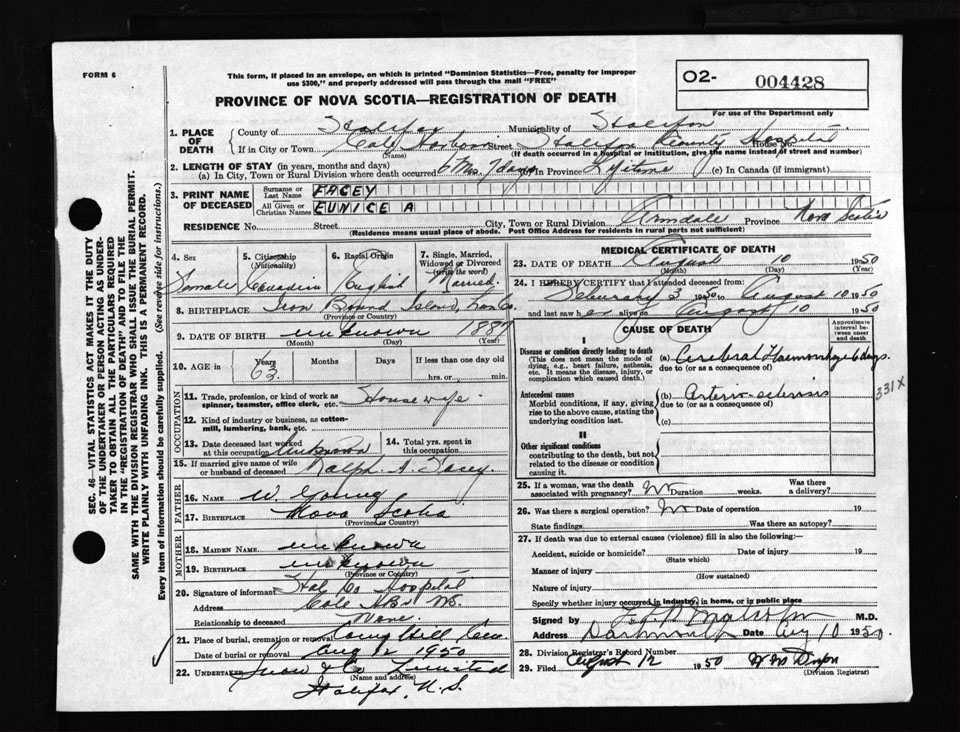 FORM 6
This form, if placed in an envelope, on which is printed "Dominion Statistics—Free, penalty for improper
use $300," and properly addressed will pass through the mail "FREE"
O2- 004428
PROVINCE OF NOVA SCOTIA—REGISTRATION OF DEATH
For use of the Department only
1. PLACE OF DEATH
County of Halifax Municipality of Halifax
If in City or Town Cole Harbour Street Halifax County Hospital House No.
(Name) (If death occurred in a hospital or institution, give the name instead of street and number)
2. LENGTH OF STAY (in years, months and days)
(a) In City, Town or Rural Division where death occurred 6 Mos. 7 days In Province Lifetime (c) In Canada (if immigrant)
3. PRINT NAME OF DECEASED
Surname or Last Name FACEY
All Given or Christian Names EUNICE A
RESIDENCE No. Street City, Town or Rural Division Armdale Province Nova Scotia
(Residence means usual place of abode. Post Office Address for residents in rural parts not sufficient)
4. Sex Female
5. Citizenship (Nationality) Canadian
6. Racial Origin English
7. Single, Married, Widowed or Divorced (write the word) Married
8. BIRTHPLACE Iron Bound Island, Lun Co.
(Province or Country)
9. DATE OF BIRTH unknown 1887
(Month) (Day) (Year)
10. AGE in Years 63 Months Days If less than one day old
hrs. or min.
OCCUPATION
11. Trade, profession, or kind of work as spinner, teamster, office clerk, etc. Housewife
12. Kind of industry or business, as cotton-mill, lumbering, bank, etc.
13. Date deceased last worked at this occupation Unknown
14. Total yrs. spent in this occupation
15. If married give name of wife or husband of deceased Ralph A. Facey
FATHER
16. NAME W. Young
17. BIRTHPLACE Nova Scotia
(Province or Country)
MOTHER
18. MAIDEN NAME unknown
19. BIRTHPLACE unknown
(Province or Country)
20. Signature of informant Hal Co Hospital
Address Cole Hbr NS.
Relationship to deceased None
21. Place of burial, cremation or removal Cem.
Date of burial or removal Aug 12 1950
22. UNDERTAKER Snow & Co Limited
(Name and address)
Halifax, N.S.
MEDICAL CERTIFICATE OF DEATH
23. DATE OF DEATH August 10 1950
(Month) (Day) (Year)
24. I HEREBY CERTIFY that I attended deceased from:
February 3 1950 to August 10 1950
and last saw her alive on August 10 1950
CAUSE OF DEATH
Approximate interval between onset and death
I
Disease or condition directly leading to death
(This does not mean the mode of dying, e.g., heart failure, asthenia, etc. It means the disease, injury, or complication which caused death.)
(a) Cerebral Haemorrhage 6 days.
due to (or as a consequence of)
Antecedent causes
Morbid conditions, if any, giving rise to the above cause, stating the underlying condition last.
(b) Arterio-sclerosis
due to (or as a consequence of)
(c)
331X
II
Other significant conditions
contributing to the death, but not related to the disease or condition causing it.
25. If a woman, was the death associated with pregnancy? No Duration weeks. Was there a delivery?
26. Was there a surgical operation? No Date of operation 19
State findings Was there an autopsy?
27. If death was due to external causes (violence) fill in also the following:
Accident, suicide or homicide? Date of injury 19
(State which)
Manner of injury
(How sustained)
Nature of injury
Specify whether injury occurred in industry, in home, or in public place
Signed by M.D.
Address Dartmouth Date Aug 10 1950
28. Division Registrar's Record Number
29. Filed August 12 1950
(Division Registrar)
SEC. 46—VITAL STATISTICS ACT MAKES IT THE DUTY
OF THE UNDERTAKER OR PERSON ACTING AS UNDERTAKER
TO OBTAIN ALL THE PARTICULARS REQUIRED
IN THE "REGISTRATION OF DEATH" AND TO FILE THE
SAME WITH THE DIVISION REGISTRAR WHO SHALL ISSUE THE BURIAL PERMIT.
WRITE PLAINLY WITH UNFADING INK. THIS IS A PERMANENT RECORD.
Every item of information should be carefully supplied. (See reverse side for instructions.)